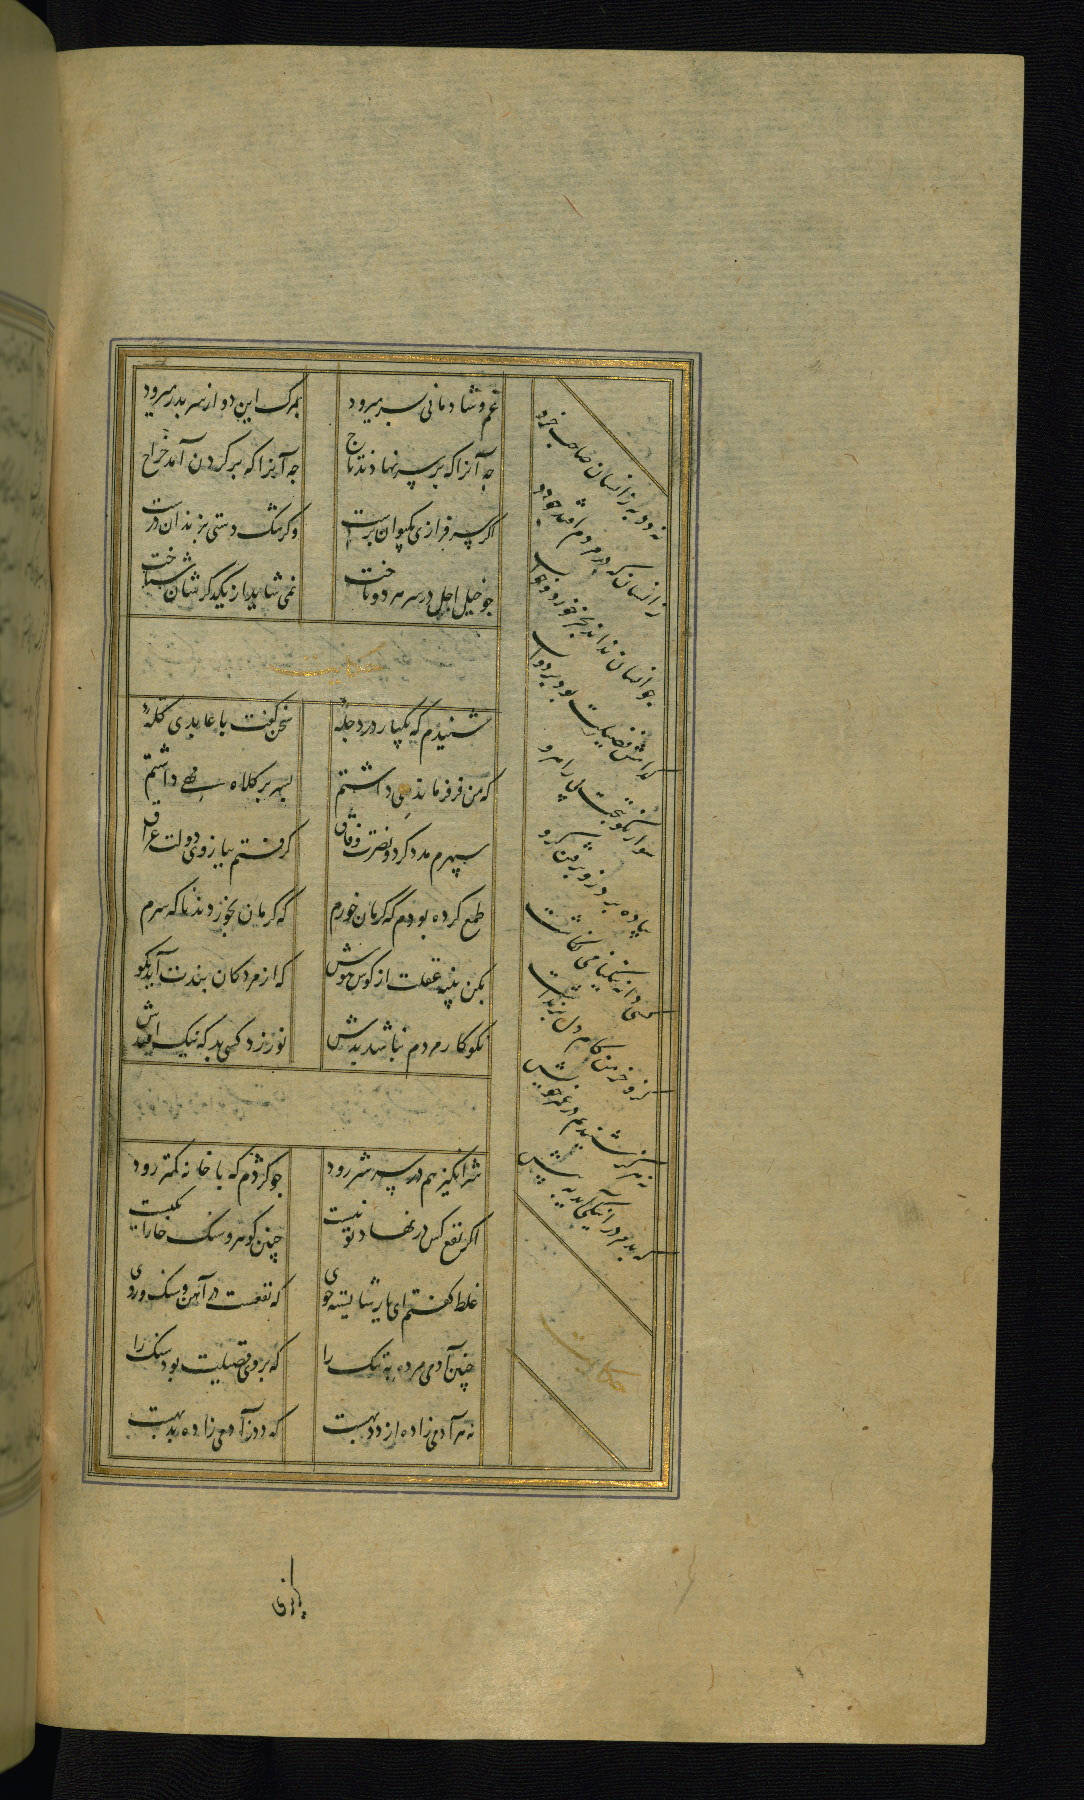 غم و شادمانی بسر میرود بمرک این دو از سر بدر میرود
چه آنرا که بر سر نهادند تاج چه آنرا که بر کردن آمد خراج
اکر سرفرازی بکیوان برست وکر تنک دستی بزندان درست
چو خیل اجل در سر هر دو تاخت نمی شاید از یکدکرشان شناخت
حکایت
شنیدم که یکبار در دجلهٔ سخن کفت با عابدی کلهٔ
که من فر فرماندهی داشتم بسر بر کلاه مهی داشتم
سپهرم مدد کرد و نصرت وفاق کرفتم ببازوی دولت عراق
طمع کرده بودم که کرمان خورم که کرمان بخوردند ناکه سرم
بکن پنبه غفلت از کوش هوش که از مردکان پندت آید بکوش
نکوکار مردم نباشد بدش نورزد کسی بد که نیک افتدش
شر انکیز هم در سر شر رود چو کژدم که با خانه کمتر رود
اکر نفع کس در نهاد تو نیست چنین کوهر و سنک خارا یکیست
غلط کفتم ای یار شایسته خوی که نفعست در آهن و سنک و روی
چنین آدمی مرده به ننک را که بر وی فضیلت بود سنک را
نه هر آدمی زاده از دد بهست که دد ز آدمی زاده بد بهست
به از دد انسان صاحب خرد
نه انسان که در مردم افتد چو دد
چو انسان نداند بجز خورد و خواب
کدامش فضیلت بود بر دواب
سوار نکون بخت بی راه رو
پیاده برد زو برفتن کرو
کسی دانه نیکنامی نکاشت
کزو خرمن کام دل برنداشت
نه هرکز شنیدیم در عمر خویش
که بد مرد را نیکی آید به پیش
حکایت